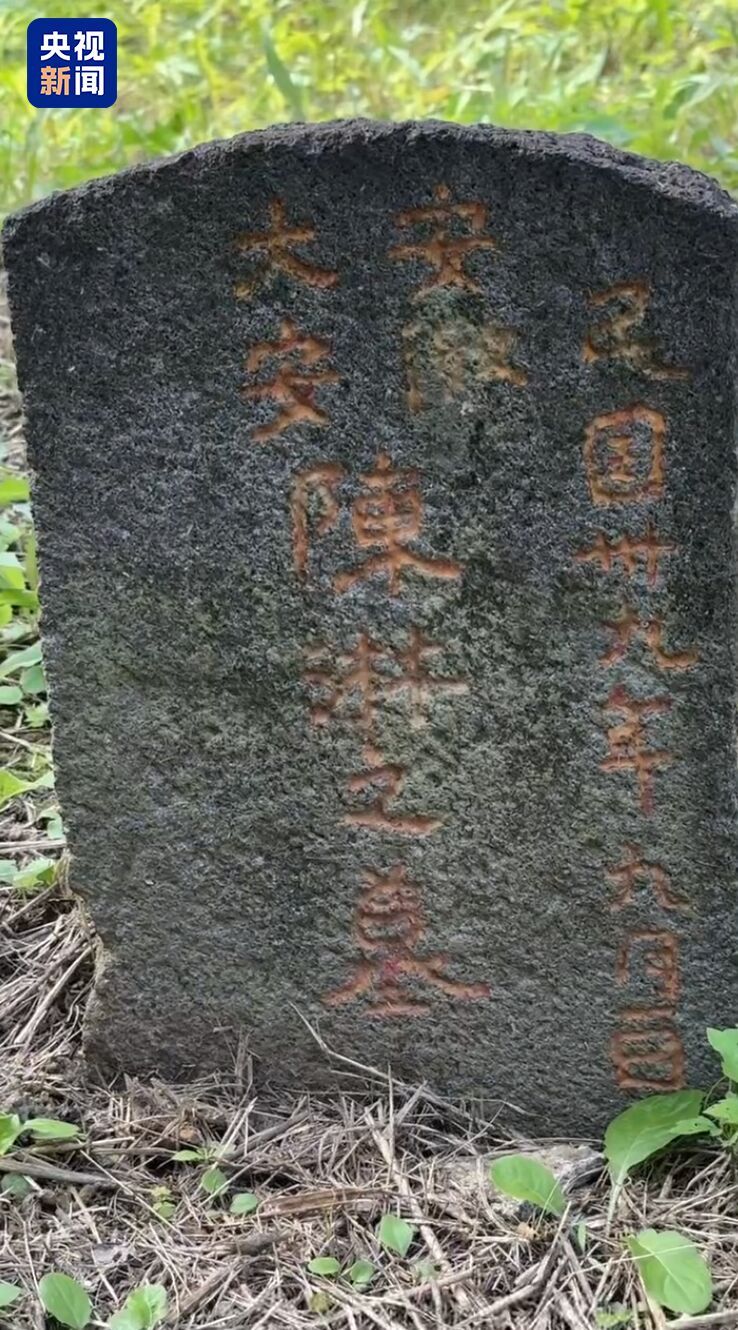 央视
新闻
民國卅九年九月日
安
大安
陳之墓